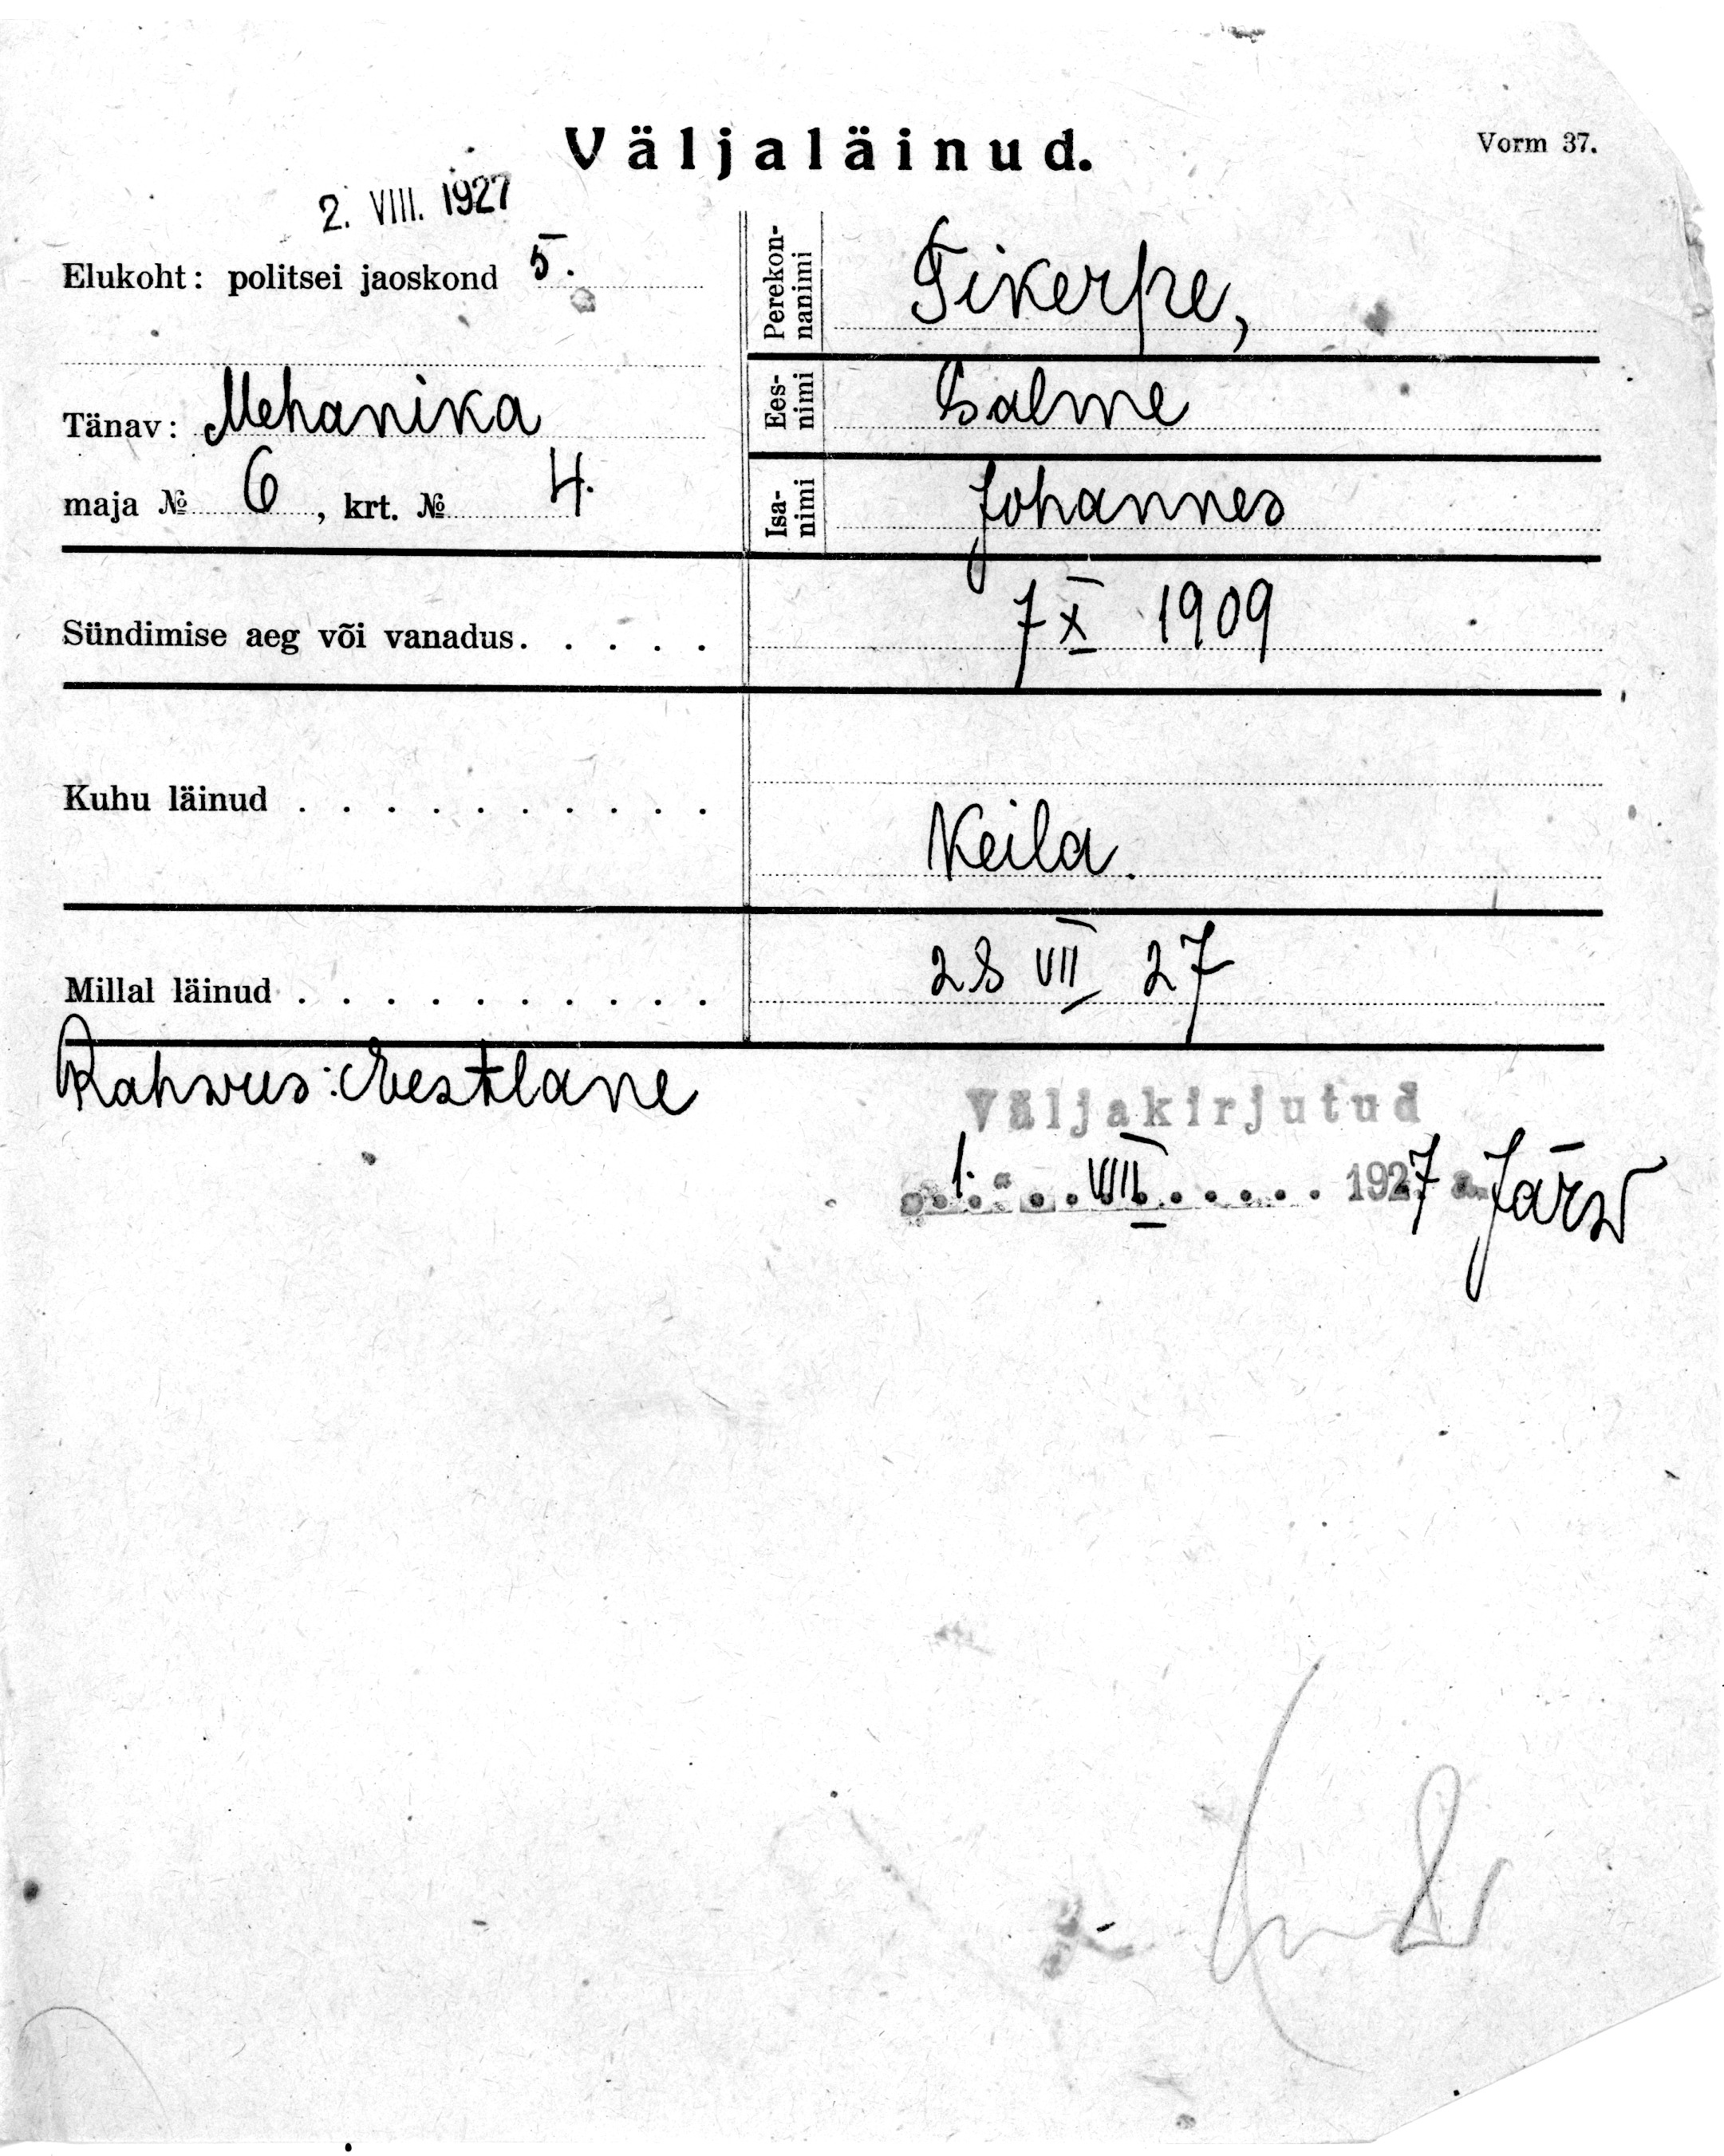 Väljaläinud.
Vorm 37.
2. VIII. 1927
Elukoht: politsei jaoskond 5.
Tänav: Mehanika
maja № 6, krt. № 4.
Perekon-
nanimi
Tikerpe,
Ees-
nimi
Salme
Isa-
nimi
Johannes
Sündimise aeg või vanadus. . . . . 7 X 1909
Kuhu läinud . . . . . . . . . . Keila.
Millal läinud . . . . . . . . . . 28 VII 27
Rahvus: Eestlane
Väljakirjutud
1. VIII 1927 a. Järw